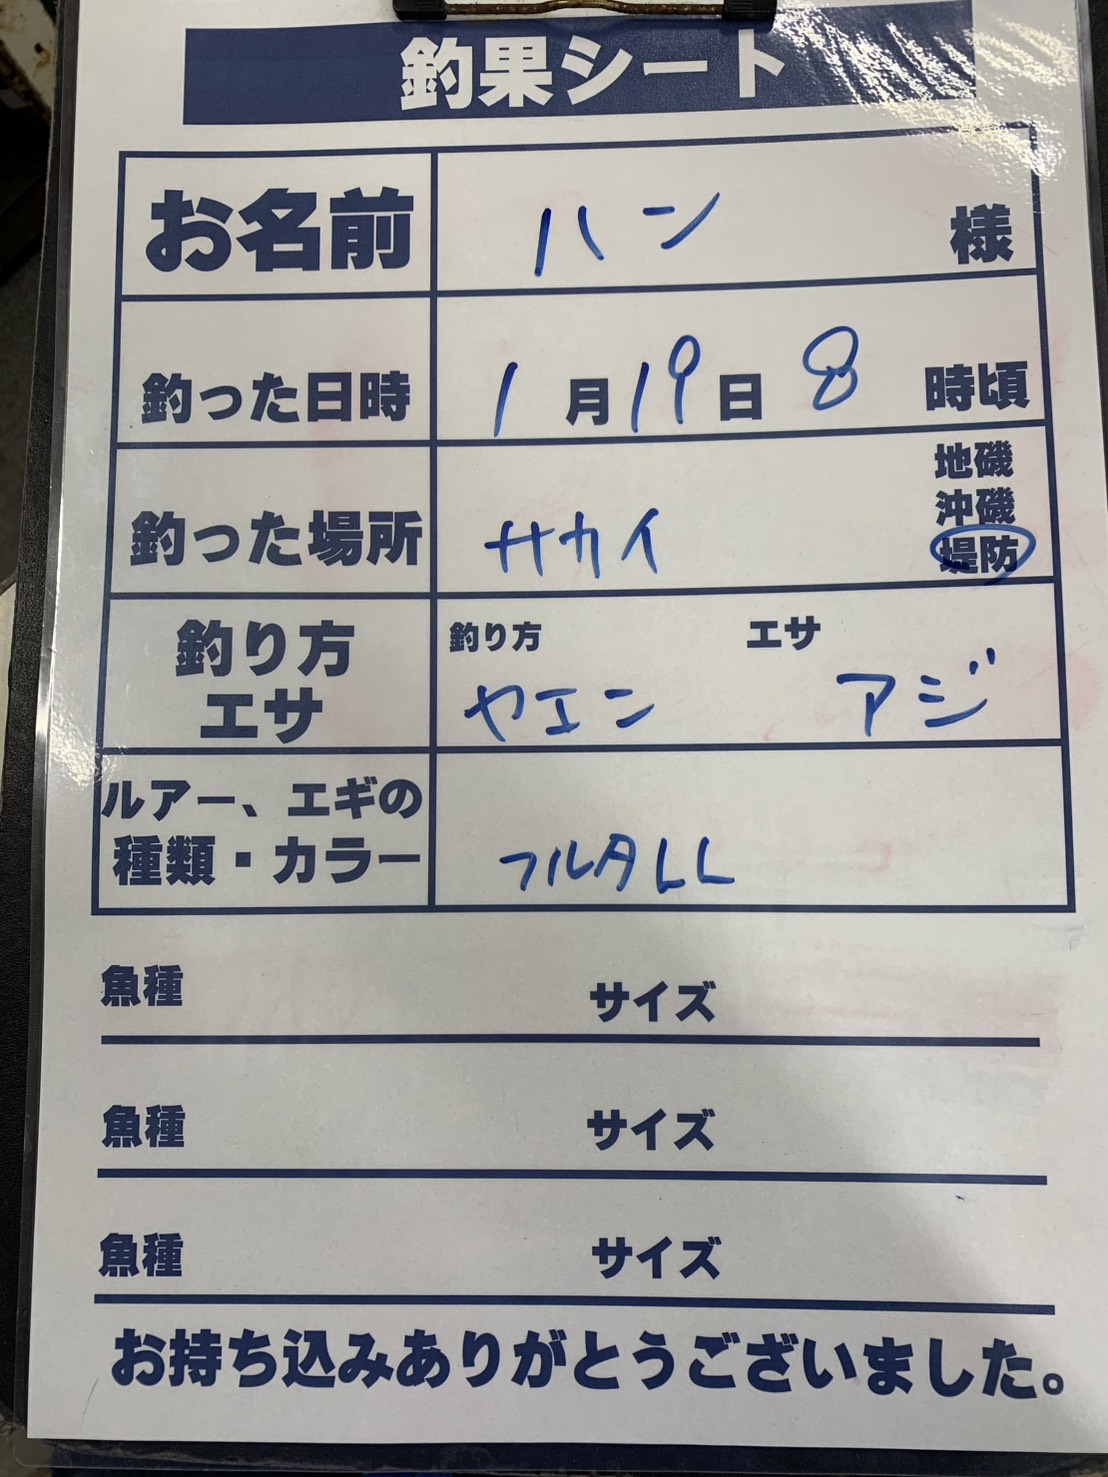 釣果シート
お名前 ハン 様
釣った日時 1月19日 8時頃
釣った場所 サカイ
地磯
沖磯
堤防
釣り方
エサ
釣り方 エサ
ヤエン アジ
ルアー、エギの
種類・カラー
フルタLL
魚種 サイズ
魚種 サイズ
魚種 サイズ
お持ち込みありがとうございました。